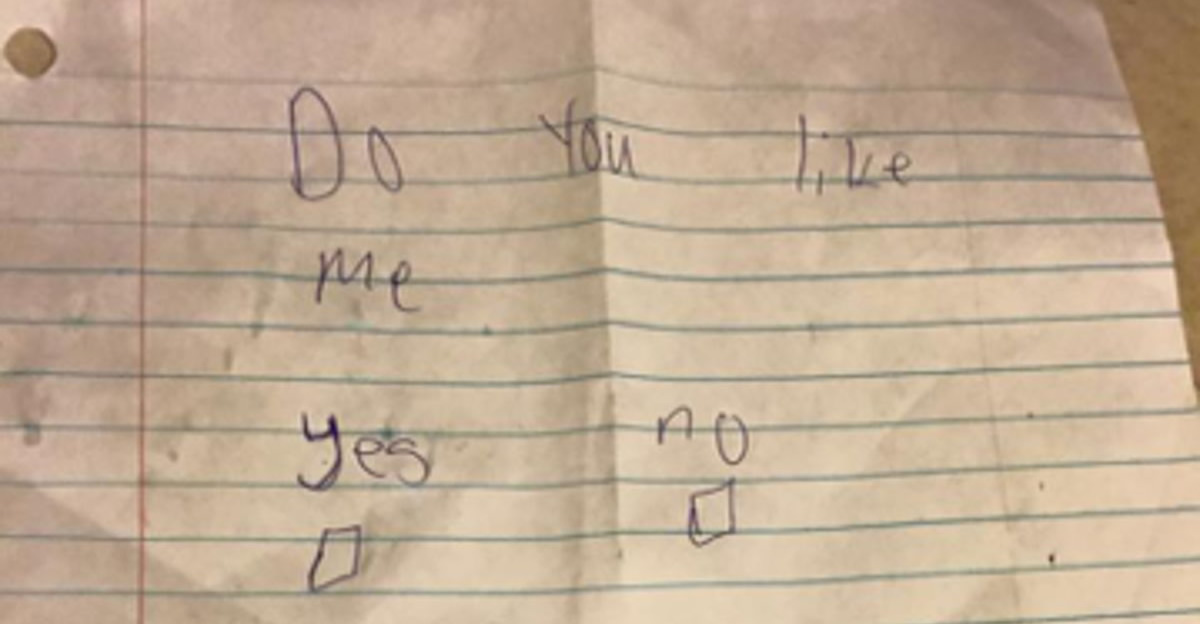 Do you like
me
yes no